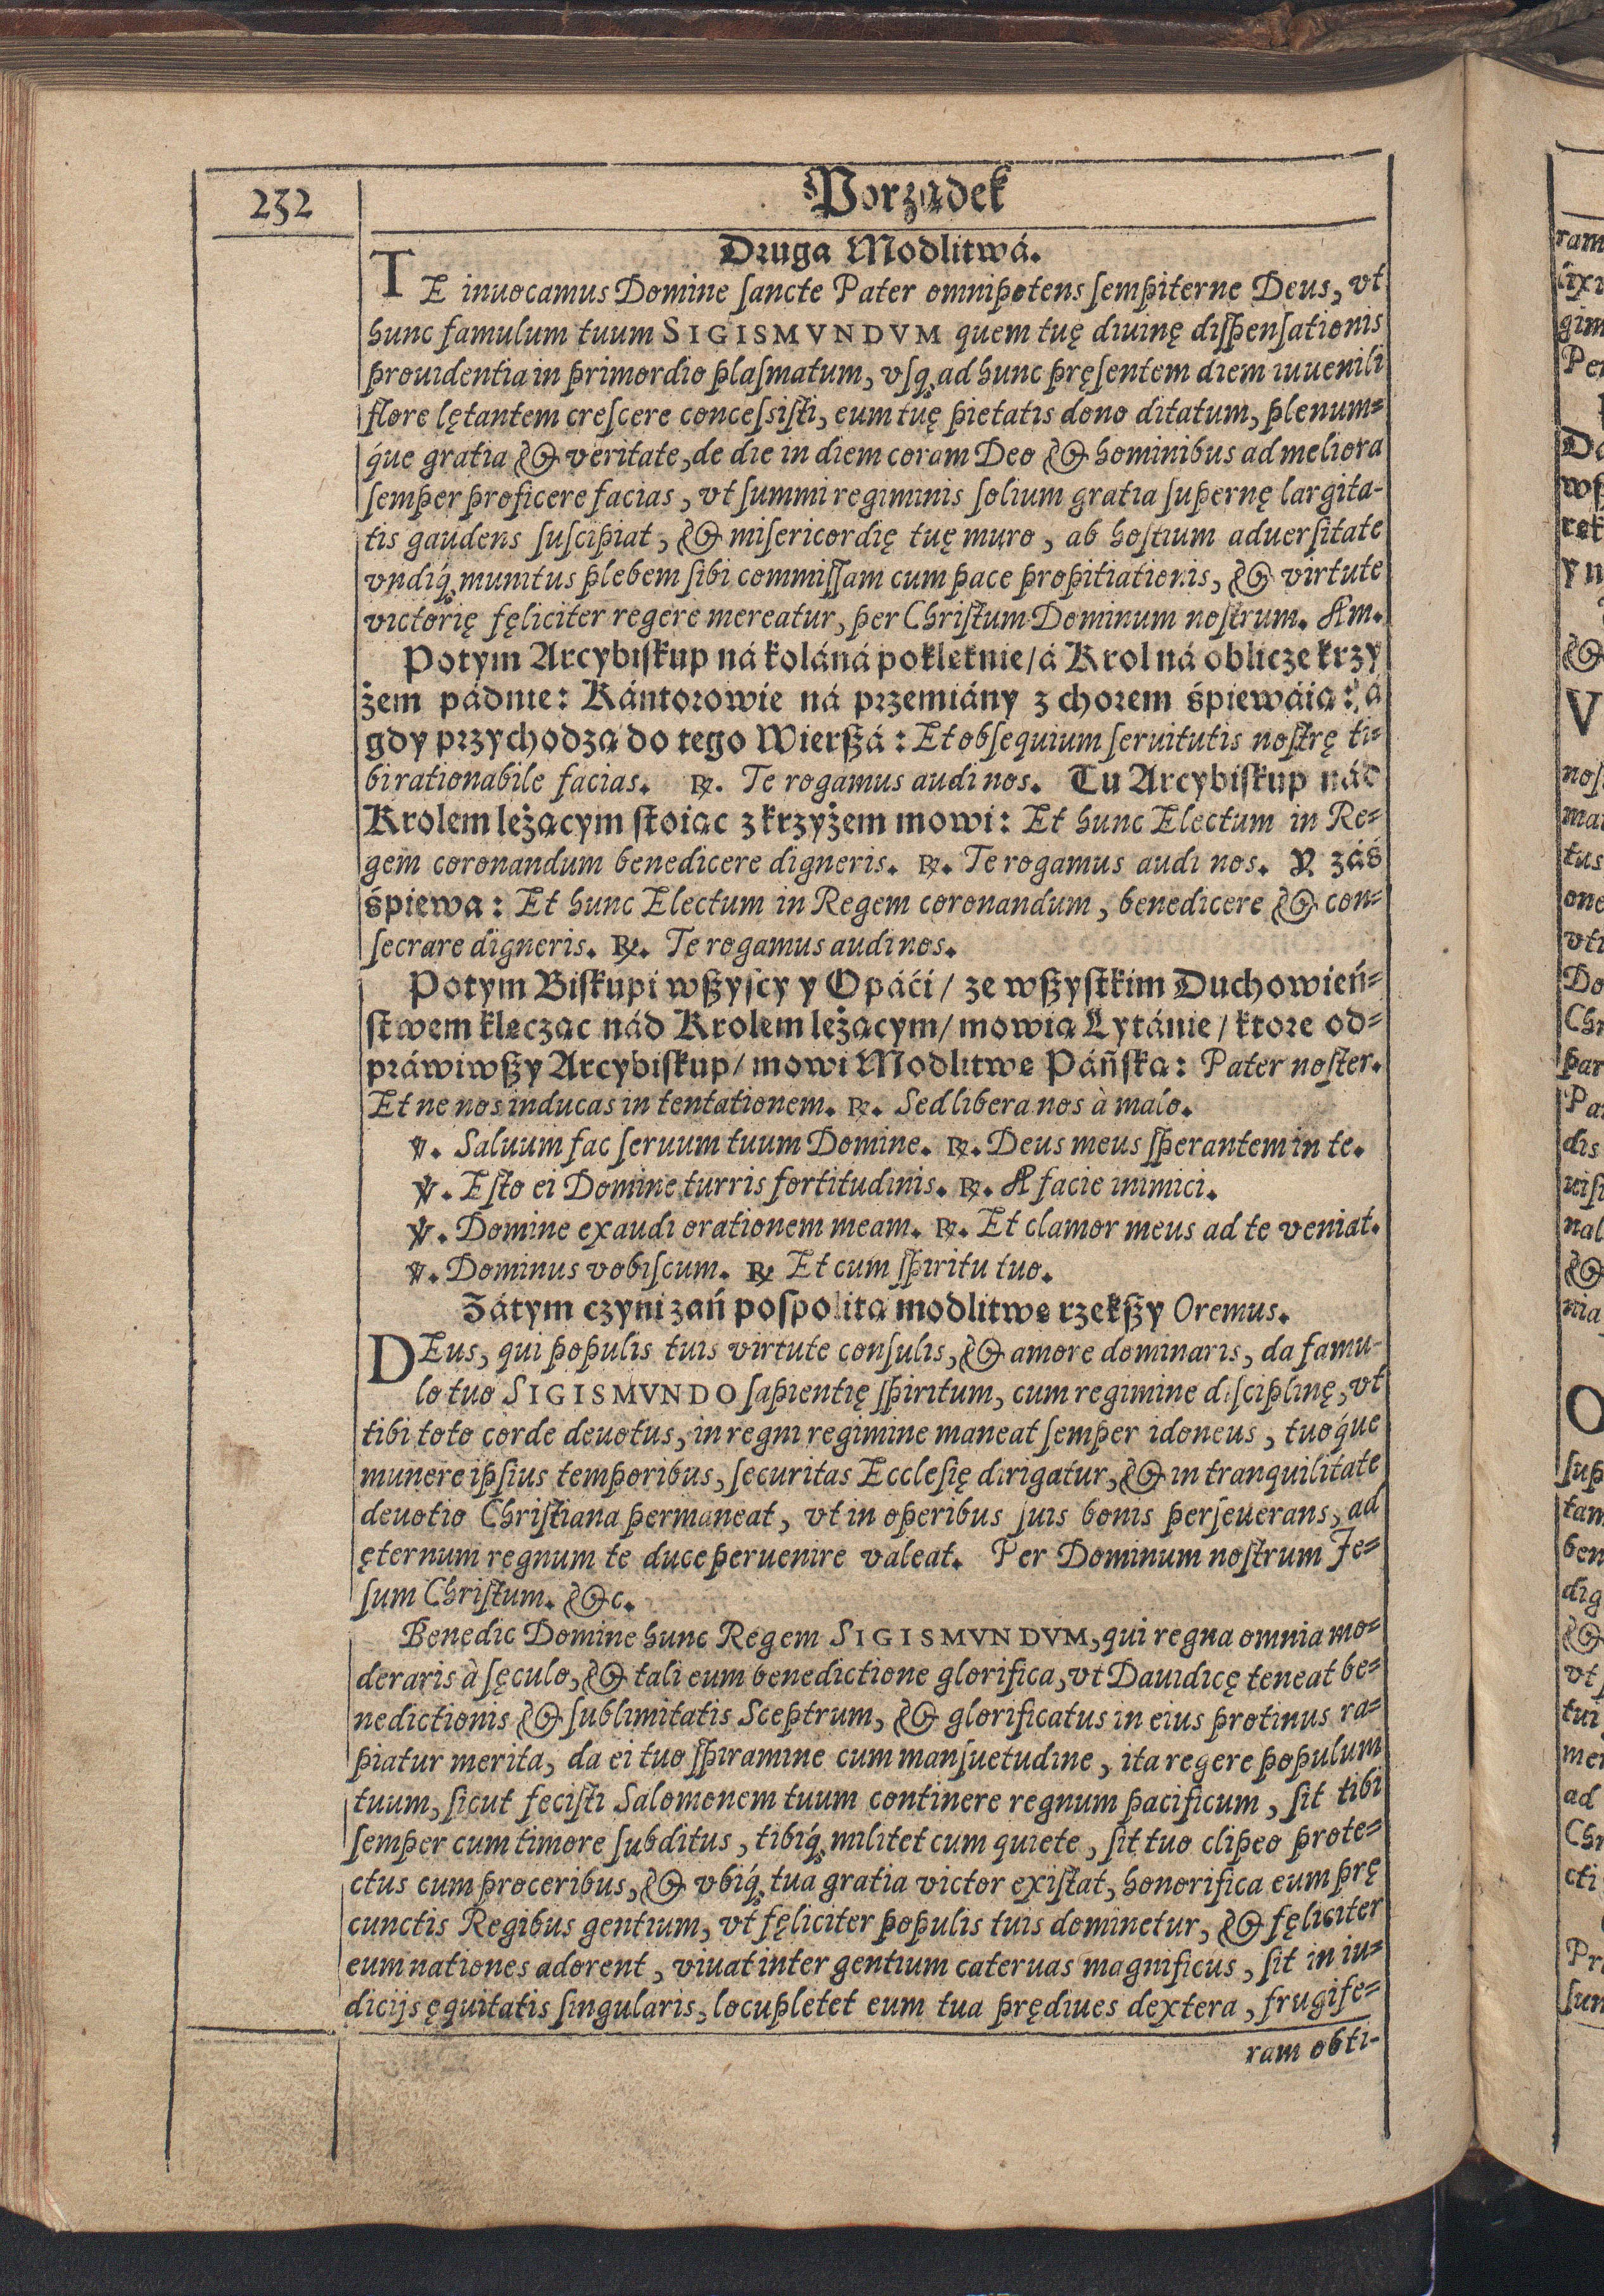 232
Porządek
Druga Modlitwá.
TE inuocamus Domine ſancte Pater omnipotens ſempiterne Deus, vt
hunc famulum tuum SIGISMVNDVM quem tuę diuinę diſpenſationis
prouidentia in primordio plaſmatum, vſq; ad hunc pręſentem diem iuuenili
flore lętantem creſcere conceſsiſti, eum tuę pietatis dono ditatum, plenum=
q́ue gratia & veritate, de die in diem coram Deo & hominibus ad meliora
ſemper proficere facias, vt ſummi regiminis ſolium gratia ſupernę largita-
tis gaudens ſuſcipiat, & miſericordię tuę muro, ab hoſtium aduerſitate
vndiq́; munitus plebem ſibi commiſſam cum pace propitiationis, & virtute
victorię fęliciter regere mereatur, per Chriſtum Dominum noſtrum. Am.
Potym Arcybiſkup ná koláná poklęknie/á Krol ná oblicze krzy
żem pádnie: Kántorowie ná przemiány z chorem śpiewáią: á
gdy przychodzą do tego Wierßá: Et obſequium ſeruitutis noſtrę ti=
bi rationabile facias. ℞. Te rogamus audi nos. Tu Arcybiſkup nád
Krolem leżącym ſtoiąc z krzyżem mowi: Et hunc Electum in Re=
gem coronandum benedicere digneris. ℞. Te rogamus audi nos. Y záś
śpiewa: Et hunc Electum in Regem coronandum, benedicere & con=
ſecrare digneris. ℞. Te rogamus audi nos.
Potym Biſkupi wßyſcy y Opáći/ ze wßyſtkim Duchowień=
ſtwem klęcząc nád Krolem leżącym/ mowią Lytánie/ ktore od=
práwiwßy Arcybiſkup/ mowi Modlitwę Páńſką: Pater noſter.
Et ne nos inducas in tentationem. ℞. Sed libera nos à malo.
℣. Saluum fac ſeruum tuum Domine. ℞. Deus meus ſperantem in te.
℣. Eſto ei Domine turris fortitudinis. ℞. A facie inimici.
℣. Domine exaudi orationem meam. ℞. Et clamor meus ad te veniat.
℣. Dominus vobiſcum. ℞ Et cum ſpiritu tuo.
Zátym czyni zań poſpolitą modlitwę rzekßy Oremus.
DEus, qui populis tuis virtute conſulis, & amore dominaris, da famu-
lo tuo SIGISMVNDO ſapientię ſpiritum, cum regimine diſciplinę, vt
tibi toto corde deuotus, in regni regimine maneat ſemper idoneus, tuoq́ue
munere ipſius temporibus, ſecuritas Eccleſię dirigatur, & in tranquilitate
deuotio Chriſtiana permaneat, vt in operibus ſuis bonis perſeuerans, ad
ęternum regnum te duce peruenire valeat. Per Dominum noſtrum Ie=
ſum Chriſtum. &c.
Benedic Domine hunc Regem SIGISMVNDVM, qui regna omnia mo=
deraris à ſęculo, & tali eum benedictione glorifica, vt Dauidicę teneat be=
nedictionis & ſublimitatis Sceptrum, & glorificatus in eius protinus ra=
piatur merita, da ei tuo ſpiramine cum manſuetudine, ita regere populum
tuum, ſicut feciſti Salomonem tuum continere regnum pacificum, ſit tibi
ſemper cum timore ſubditus, tibiq́; militet cum quiete, ſit tuo clipeo prote=
ctus cum proceribus, & vbiq́; tua gratia victor exiſtat, honorifica eum prę
cunctis Regibus gentium, vt fęliciter populis tuis dominetur, & fęliciter
eum nationes adorent, viuat inter gentium cateruas magnificus, ſit in iu=
dicijs ęquitatis ſingularis, locupletet eum tua prędiues dextera, frugife=
ram obti-